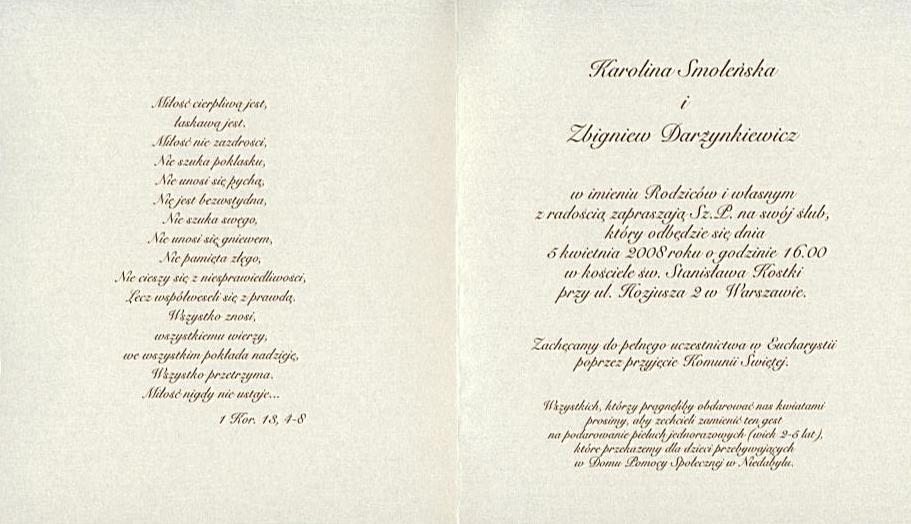 Miłość cierpliwą jest,
łaskawą jest.
Miłość nie zazdrości,
Nie szuka poklasku,
Nie unosi się pychą,
Nie jest bezwstydna,
Nie szuka swego,
Nie unosi się gniewem,
Nie pamięta złego,
Nie cieszy się z niesprawiedliwości,
Lecz współweseli się z prawdą.
Wszystko znosi,
wszystkiemu wierzy,
we wszystkim pokłada nadzieję,
Wszystko przetrzyma.
Miłość nigdy nie ustaje...
1 Kor. 13, 4-8
Karolina Smoleńska
i
Zbigniew Darżynkiewicz
w imieniu Rodziców i własnym
z radością zapraszają Sz.P. na swój ślub,
który odbędzie się dnia
5 kwietnia 2008 roku o godzinie 16.00
w kościele św. Stanisława Kostki
przy ul. Hozjusza 2 w Warszawie.
Zachęcamy do pełnego uczestnictwa w Eucharystii
poprzez przyjęcie Komunii Świętej.
Wszystkich, którzy pragnęliby obdarować nas kwiatami
prosimy, aby zechcieli zamienić ten gest
na podarowanie pieluch jednorazowych (wiek 2-5 lat),
które przekażemy dla dzieci przebywających
w Domu Pomocy Społecznej w Niedabylu.